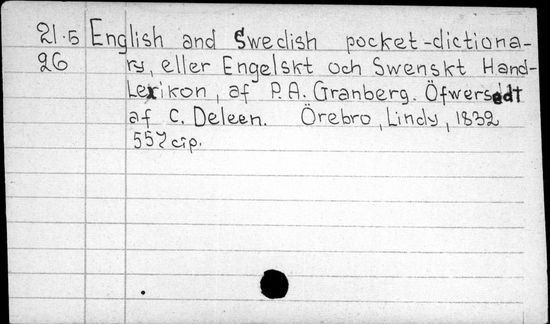 21.5 English and Swedish pocket-dictiona-
26 ry, eller Engelskt och Swenskt Hand-
Lexikon, af P.A. Granberg. Öfwersedt
af C. Deleen. Örebro, Lindy, 1832
557 cip.